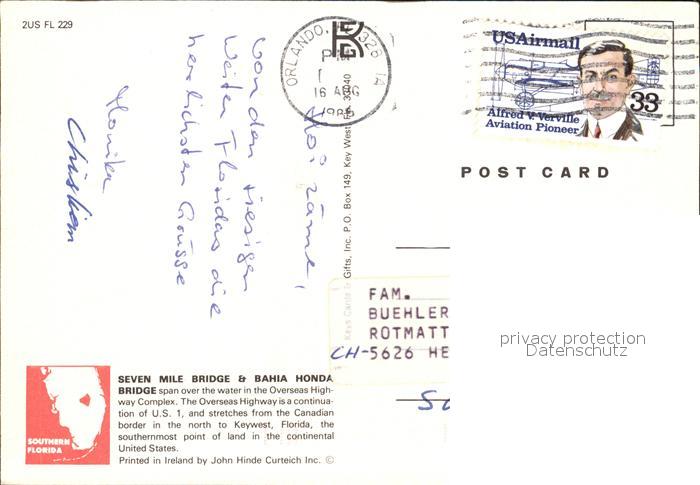 2US FL 229
ORLANDO, FL 328
PM
16 AUG
1985
USAirmail
33
Alfred V. Verville
Aviation Pioneer
POST CARD
Hoi zäme,
Von den riesigen
Weiten Floridas die
herzlichsten Grüsse
Monika
Christian
Keys Cards & Gifts, Inc. P.O. Box 149, Key West, FL 33040
FAM.
BUEHLER
ROTMATT
CH-5626 HE
privacy protection
Datenschutz
SOUTHERN
FLORIDA
SEVEN MILE BRIDGE & BAHIA HONDA
BRIDGE span over the water in the Overseas High-
way Complex. The Overseas Highway is a continua-
tion of U.S. 1, and stretches from the Canadian
border in the north to Keywest, Florida, the
southernmost point of land in the continental
United States.
Printed in Ireland by John Hinde Curteich Inc. ©